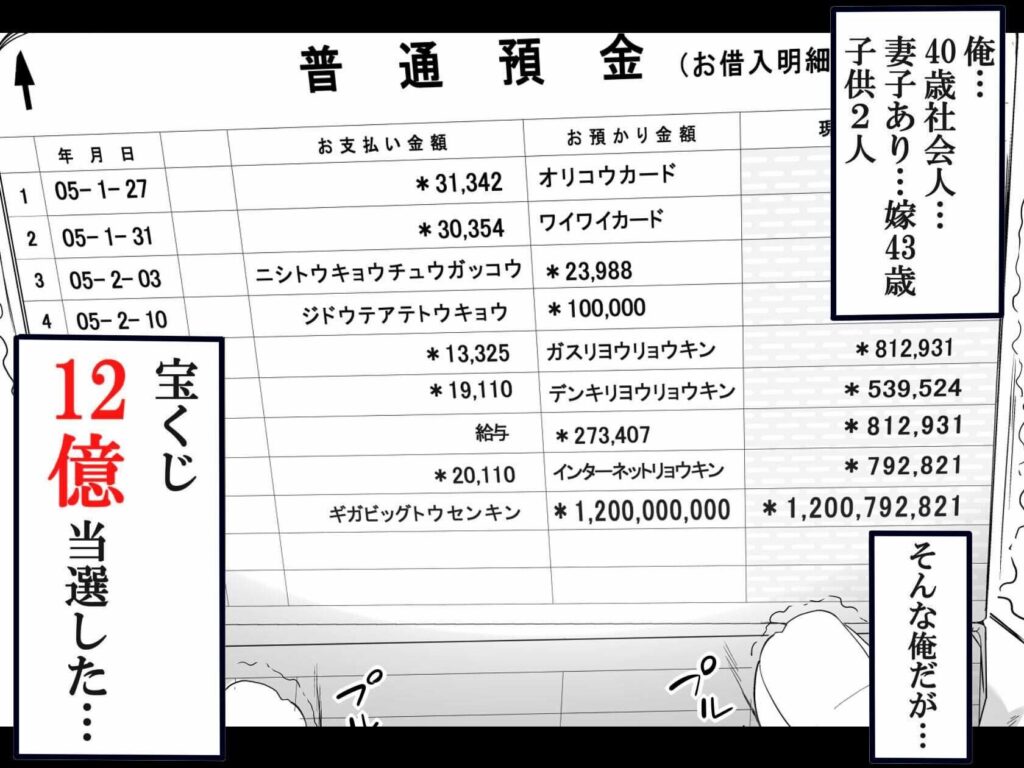 俺…
40歳社会人…
妻子あり…嫁43歳
子供２人
普通預金(お借入明細
年月日 お支払い金額 お預かり金額 現
1 05-1-27 *31,342 オリコウカード
2 05-1-31 *30,354 ワイワイカード
3 05-2-03 ニシトウキョウチュウガッコウ *23,988
4 05-2-10 ジドウテアテトウキョウ *100,000
*13,325 ガスリヨウリョウキン *812,931
*19,110 デンキリヨウリョウキン *539,524
給与 *273,407 *812,931
*20,110 インターネットリョウキン *792,821
ギガビッグトウセンキン *1,200,000,000 *1,200,792,821
そんな俺だが…
宝くじ
12億当選した…
プル
プル